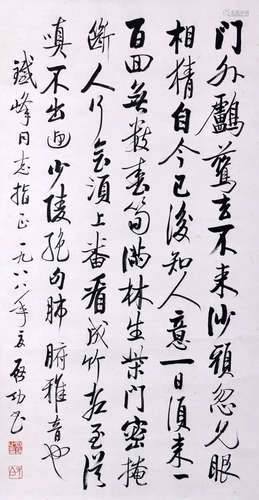 門外鸕鷀去不來沙頭忽見眼
相猜自今已後知人意一日須來一
百回無數春筍滿林生柴門密掩
斷人行會須上番看成竹客至從
嗔不出迎少陵絕句肺腑雅音也
鐵峰同志指正一九八八年夏啓功